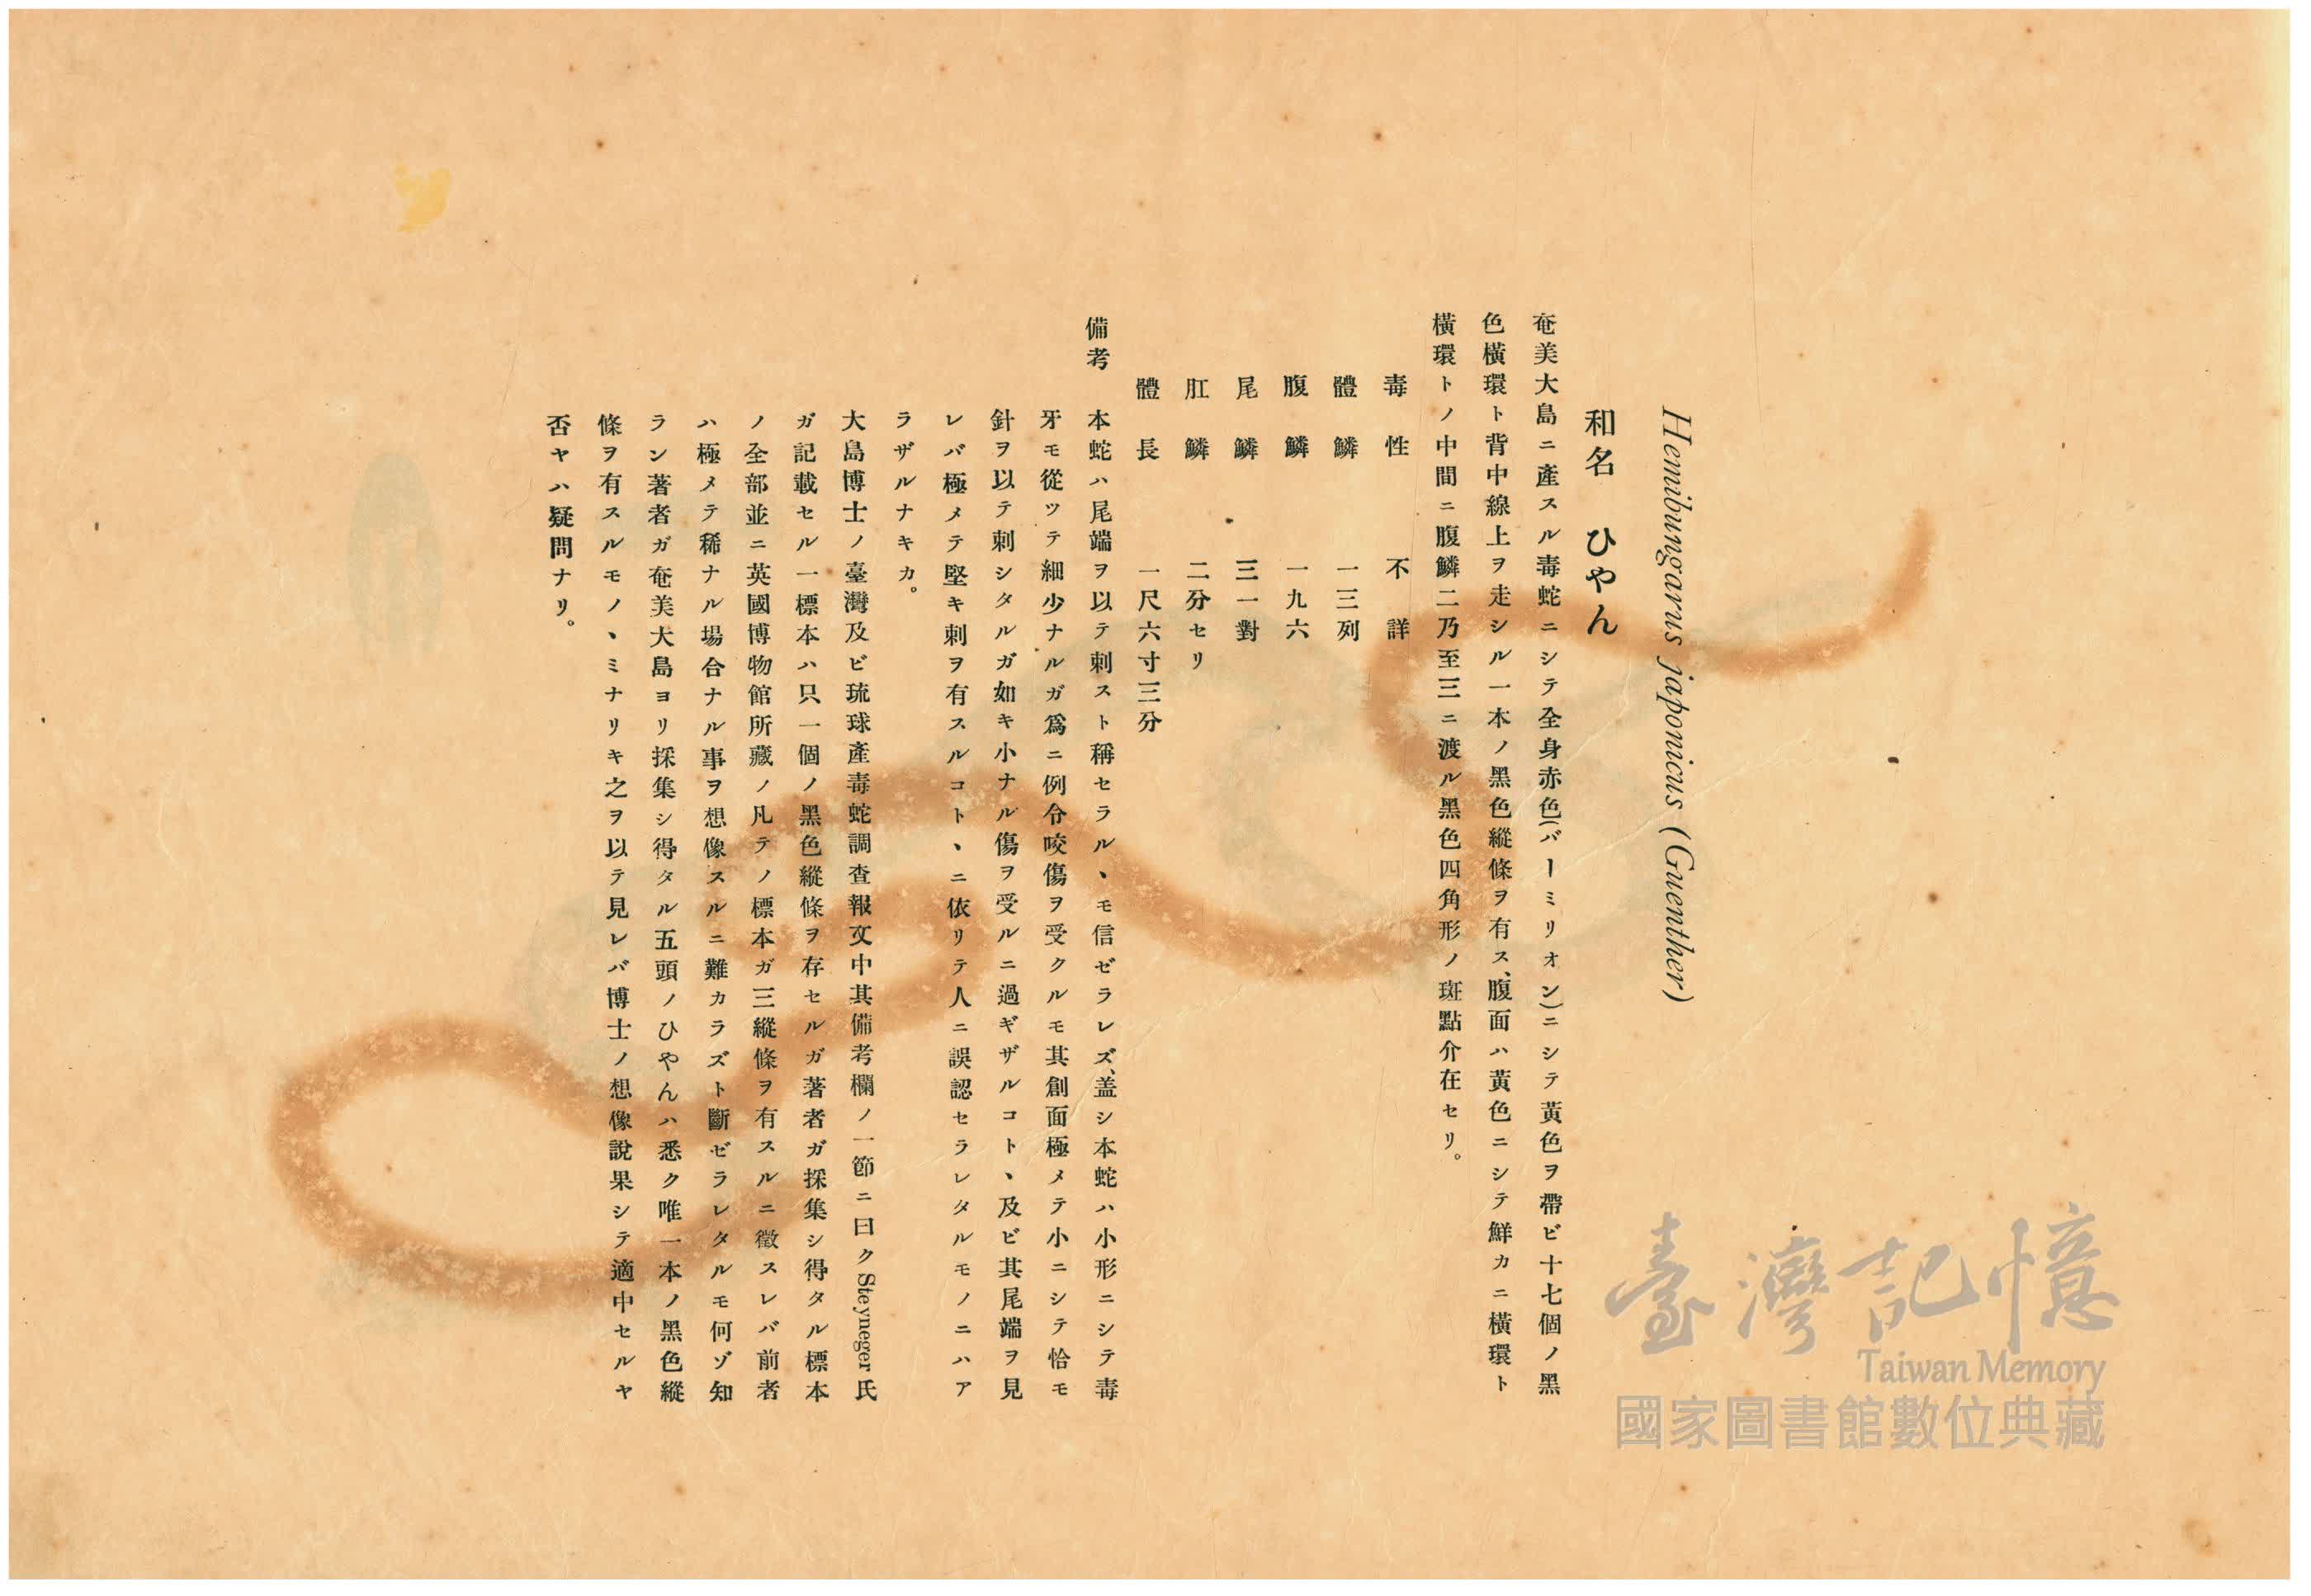 Hemibungarus japonicus (Guenther)
和名 ひやん
奄美大島ニ產スル毒蛇ニシテ全身赤色(バーミリオン)ニシテ黃色ヲ帶ビ十七個ノ黑
色橫環ト背中線上ヲ走シル一本ノ黑色縱條ヲ有ス、腹面ハ黃色ニシテ鮮カニ橫環ト
橫環トノ中間ニ腹鱗二乃至三ニ渡ル黑色四角形ノ斑點介在セリ。
毒性 不詳
體鱗 一三列
腹鱗 一九六
尾鱗 三一對
肛鱗 二分セリ
體長 一尺六寸三分
備考 本蛇ハ尾端ヲ以テ刺スト稱セラル、モ信ゼラレズ、盖シ本蛇ハ小形ニシテ毒
牙モ從ツテ細少ナルガ爲ニ例令咬傷ヲ受クルモ其創面極メテ小ニシテ恰モ
針ヲ以テ刺シタルガ如キ小ナル傷ヲ受ルニ過ギザルコト、及ビ其尾端ヲ見
レバ極メテ堅キ刺ヲ有スルコト、ニ依リテ人ニ誤認セラレタルモノニハア
ラザルナキカ。
大島博士ノ臺灣及ビ琉球產毒蛇調查報文中其備考欄ノ一節ニ曰クSteyneger氏
ガ記載セル一標本ハ只一個ノ黑色縱條ヲ存セルガ著者ガ採集シ得タル標本
ノ全部並ニ英國博物館所藏ノ凡テノ標本ガ三縱條ヲ有スルニ徵スレバ前者
ハ極メテ稀ナル場合ナル事ヲ想像スルニ難カラズト斷ゼラレタルモ何ゾ知
ラン著者ガ奄美大島ヨリ採集シ得タル五頭ノひやんハ悉ク唯一本ノ黑色縱
條ヲ有スルモノ、ミナリキ之ヲ以テ見レバ博士ノ想像說果シテ適中セルヤ
否ヤハ疑問ナリ。
臺灣記憶
Taiwan Memory
國家圖書館數位典藏